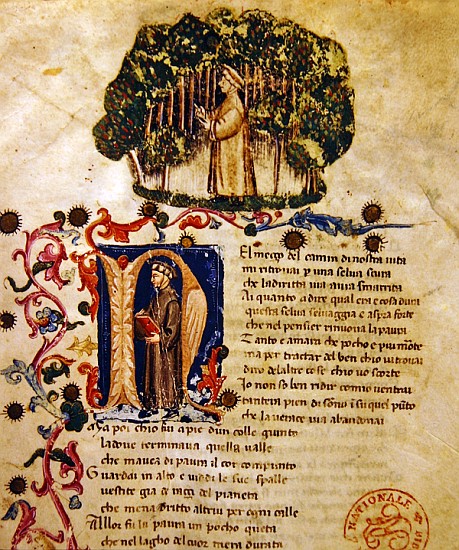 N
El meço del camin di nostra uita
mi ritrouai p una selua scura
che ladiritta uia era smarrita
Ai quanto a dire qual era e cosa dura
questa selua seluaggia e aspra forte
che nel pensier rinuoua la paura
Tanto e amara che pocho e piu morte
ma per tractar del ben chio ui trouai
diro delaltre cose chio uo scorte
Io non so ben ridir comio uentrai
tantera pien di sonno in su quel puto
che la uerace uia abandonai
Ma poi chio fui apie dun colle giunto
ladoue terminaua quella ualle
che mauea di paura il cor compunto
Guardai in alto e uiddi le sue spalle
uestite gia de raggi del pianeta
che mena dritto altrui per ogni calle
Allor fu la paura un pocho queta
che nel lagho del cuor mera durata
NATIONALE